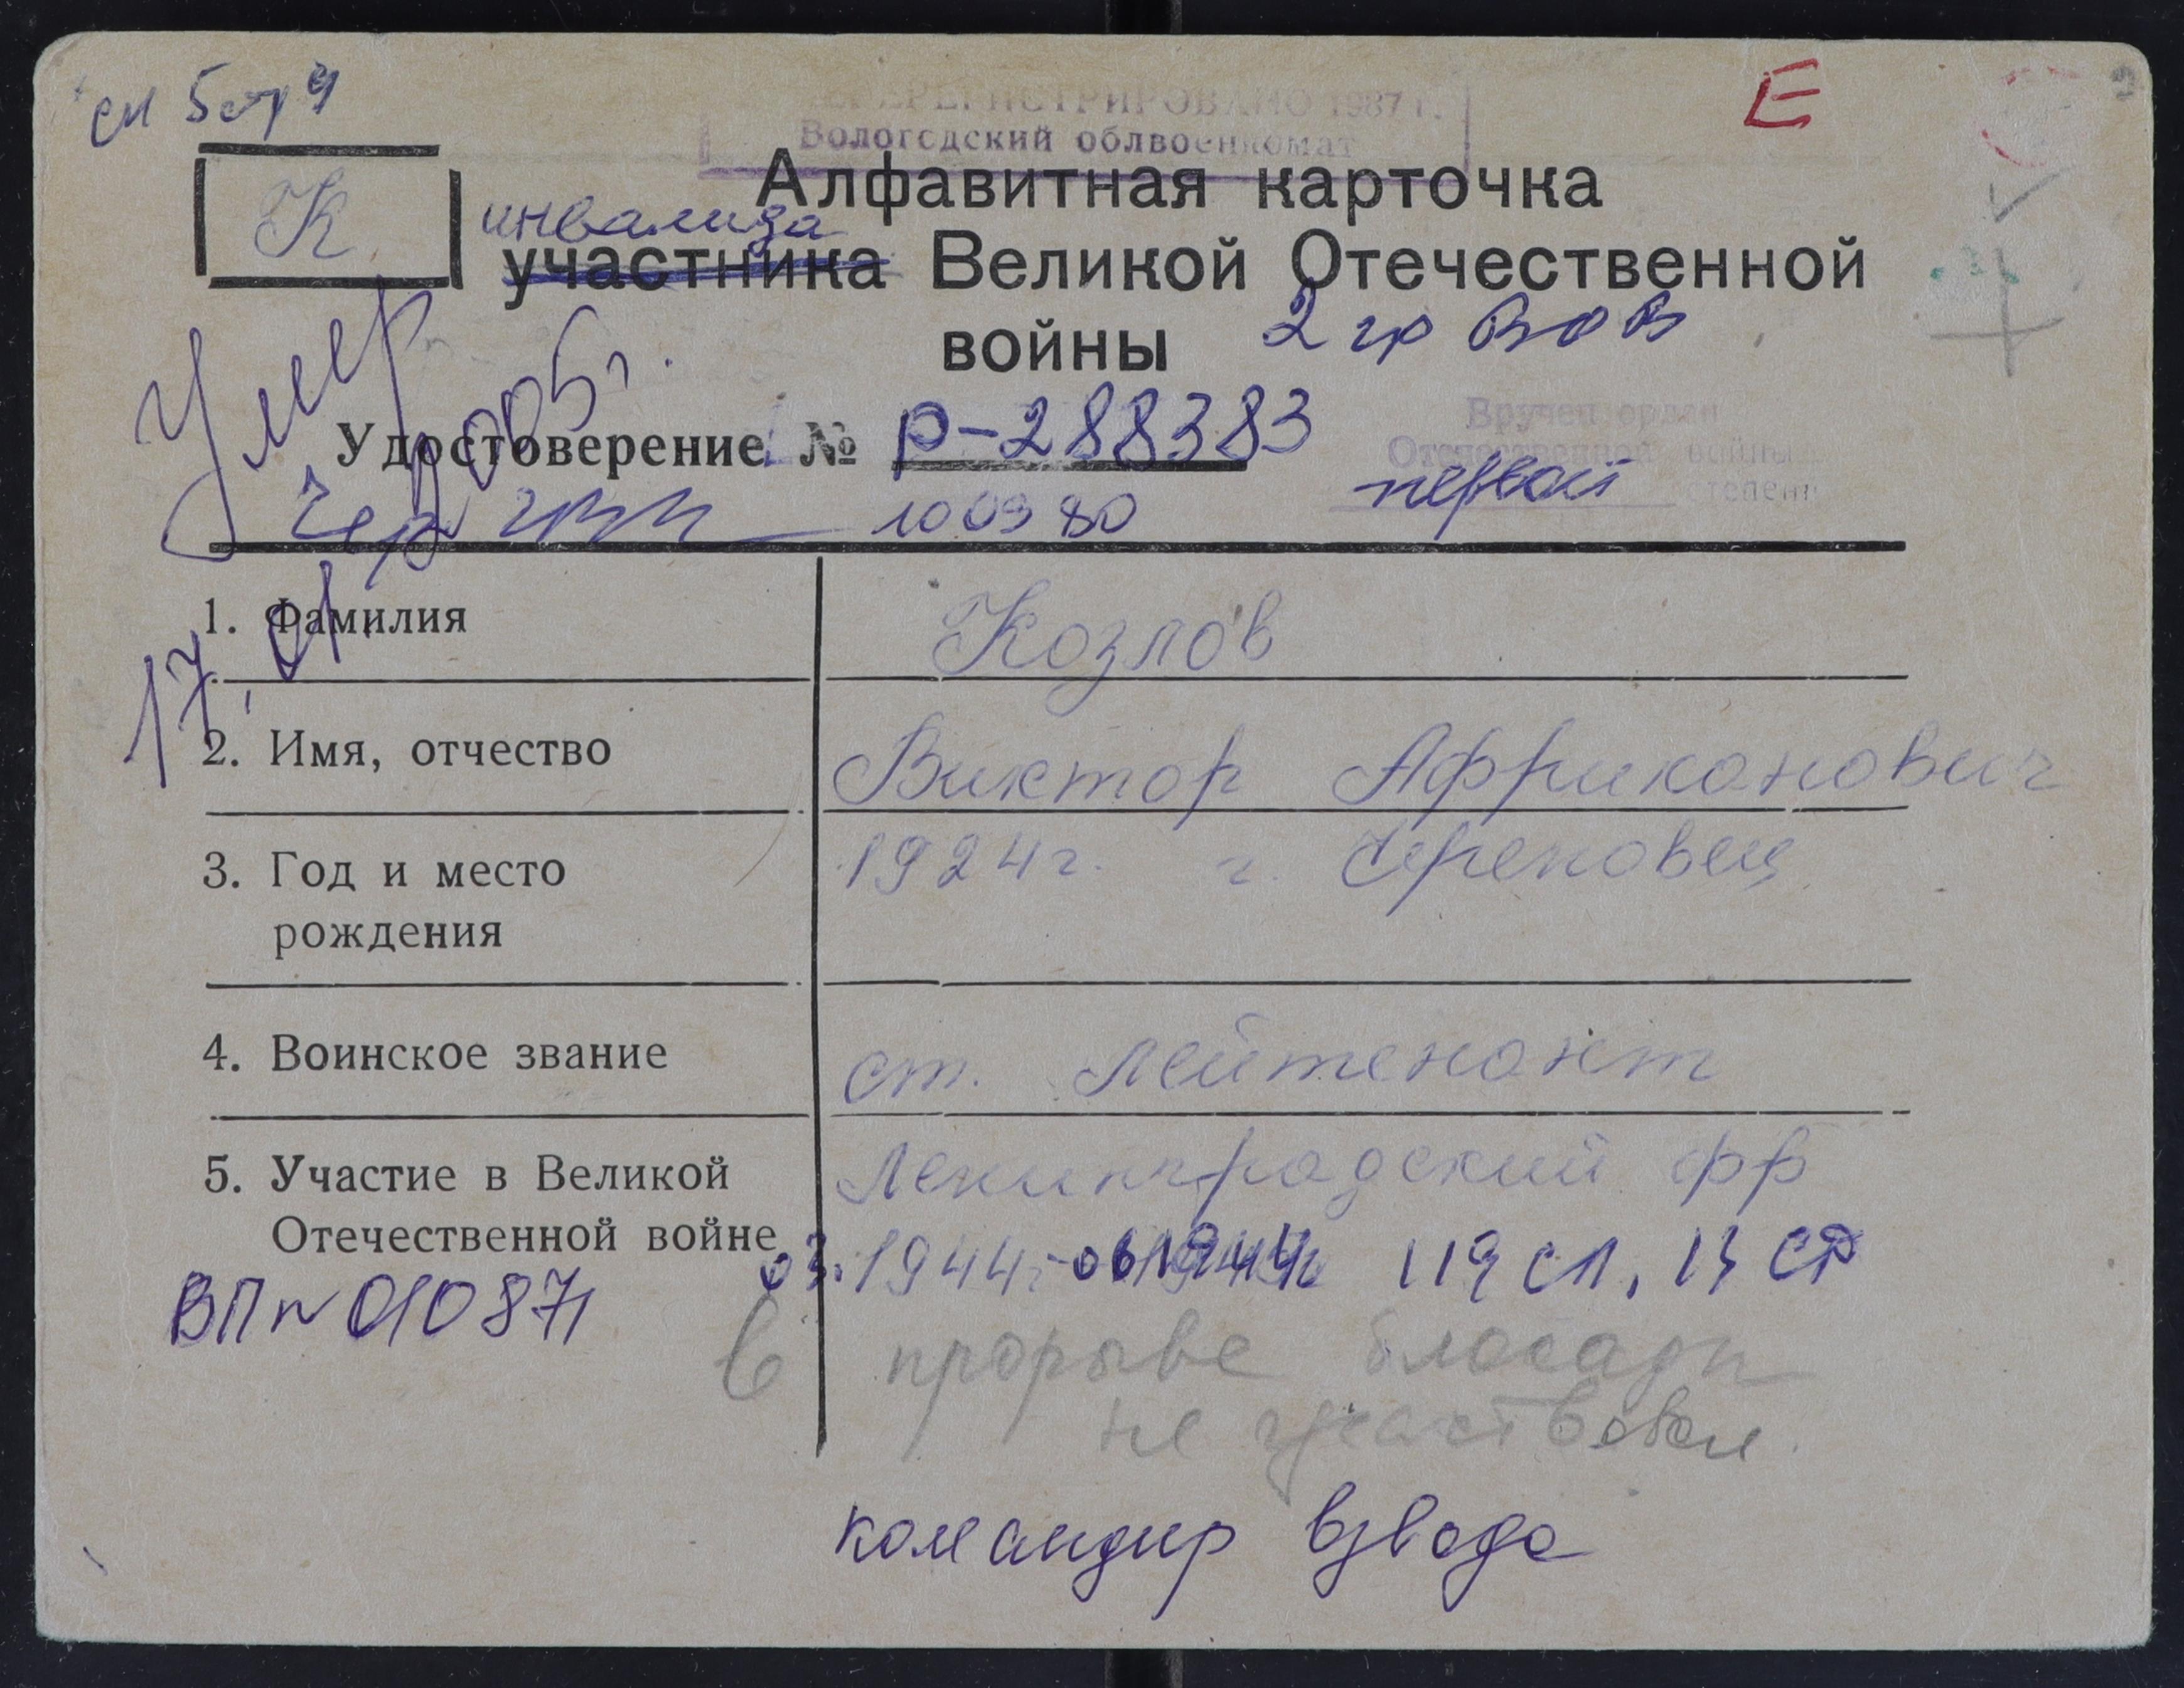 см 5 стр 4
Е
ПЕРЕРЕГИСТРИРОВАНО 1987 г.
Вологодский облвоенкомат
К
Алфавитная карточка
инвалида
участника Великой Отечественной
войны 2 гр ВОВ
Умер
2005г.
17.01
Удостоверение № Р-288383
Вручен орден
Отечественной войны
первой степени
Чер ГВК 100980
1. Фамилия Козлов
2. Имя, отчество Виктор Африканович
3. Год и место 1924г. г. Череповец
рождения
4. Воинское звание ст. лейтенант
5. Участие в Великой Ленинградский фр
Отечественной войне 03.1944г-061944г 119 СП, 13 СД
ВП № 010871
в прорыве блокады
не участвовал.
командир взвода